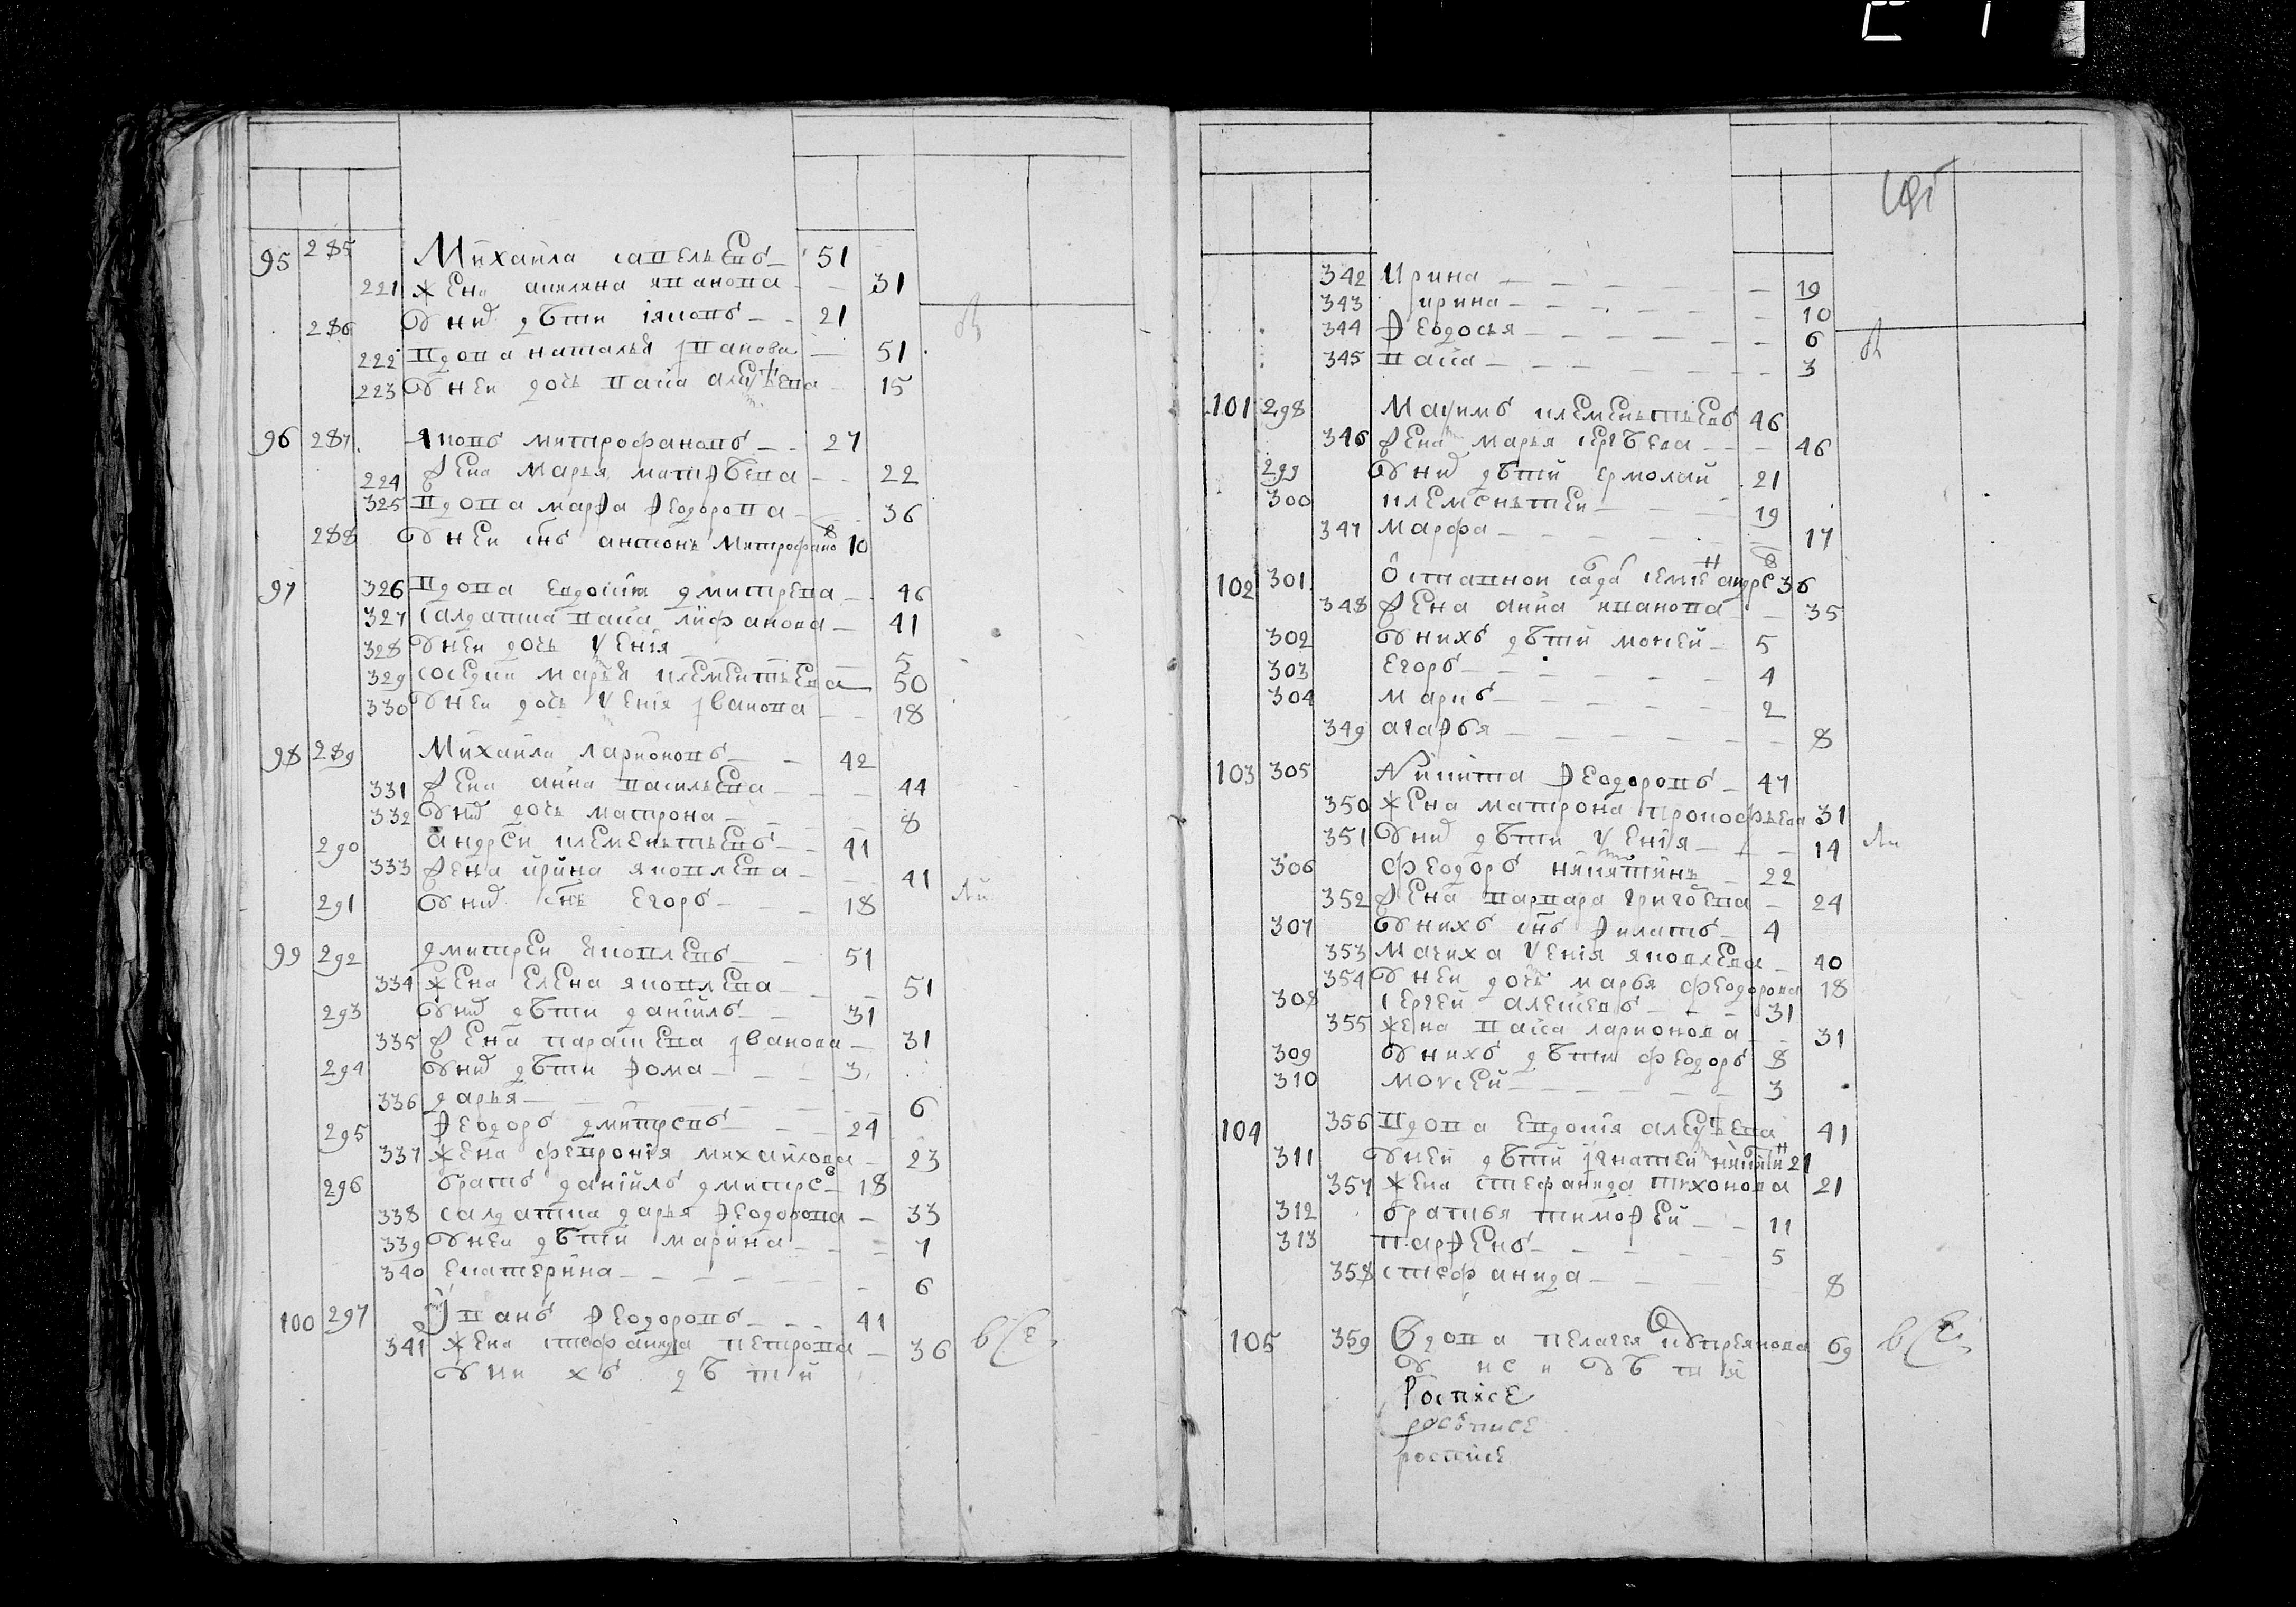 95 285 Михаила савельевъ 51
221 жена акилина ивановa 31
286 Ꙋнихъ дѣти яковъ 21
222 вдова наталья ивановa 51
223 Ꙋнеи дочь васса алеѯѣева 15
96 287 Яковъ митрофановъ 27
224 жена марья матѳѣева 22
325 вдова марѳа ѳеодорова 36
288 Ꙋнеи снъ антонъ митрофано в 10
97 326 вдова евдокия дмитрева 46
327 салдатка васса лифанова 41
328 Ꙋнеи дочь ѯения 5
329 соседки марья клементьева 50
330 Ꙋнеи дочь ѯения иванова 18
98 289 Михаила ларионовъ 42
331 жена анна васильева 44
332 Ꙋнихъ дочь матрона 8
290 андреи клементьевъ 41
333 жена ирина яковлева 41
291 Ꙋнихъ снъ егоръ 18
99 292 дмитреи яковлевъ 51
334 жена елена яковлева 51
293 Ꙋнихъ дѣти данiилъ 31
335 жена парасковa иванова 31
294 Ꙋнихъ дѣти ѳома 3
336 дарья 6
295 ѳеодоръ дмитревъ 24
337 жена феврония михаилова 23
296 братъ данiилъ дмитре в 18
338 салдатка дарья ѳеодорова 33
339 Ꙋнеи дѣти марина 7
340 екатерина 6
100 297 Иванъ ѳеодоровъ 41
341 жена стефанида петрова 36
Ꙋнихъ дѣтй
342 Ирина 19
343 ирина 10
344 ѳеодосья 6
345 васса 3
101 298 Маѯимъ клементьевъ 46
346 жена марья сергѣева 46
299 Ꙋнихъ дѣти ермолаи 21
300 клементеи 19
347 марфа 17
102 301 Ѻставнои салда семе н андре в 36
348 жена анна иванова 35
302 Ꙋнихъ дѣти моисеи 5
303 егоръ 4
304 маркъ 2
349 агаѳья 8
103 305 Никита ѳеодоровъ 47
350 жена матрона прокофьева 31
351 Ꙋнихъ дѣти ѯения 14
306 феодоръ никитинъ 22
352 жена варвара григорева 24
307 Ꙋнихъ снъ ѳилатъ 4
353 Мачиха ѯения яковлева 40
354 Ꙋнеи дочь марья феодорова 18
308 сергеи алексеевъ 31
355 жена васса ларионова 31
309 Ꙋнихъ дѣти феодоръ 8
310 моѵсеи 3
104 356 вдова евдокия алеѯѣева 41
311 Ꙋнеи дѣти игнатеи никити н 21
357 жена стефанида тихонова 21
312 братья тимоѳеи 11
313 парѳенъ 5
358 стефанида 8
105 359 Вдова пелагея 69
Ꙋнеи дѣтй
Росписе
росъписе
росписе